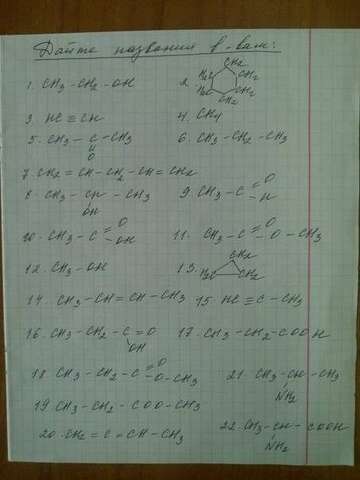 Дайте названия в-вам:
1. CH3 - CH2 - OH
2. CH2 H2C CH2 H2C CH2 CH2
3. HC ≡ CH
4. CH4
5. CH3 - C - CH3
O
6. CH3 - CH2 - CH3
7. CH2 = CH - CH2 - CH = CH2
8. CH3 - CH - CH3
OH
9. CH3 - C = O
H
10. CH3 - C = O
OH
11. CH3 - C = O
O - CH3
12. CH3 - OH
13. CH2 H2C CH2
14. CH3 - CH = CH - CH3
15. HC ≡ C - CH3
16. CH3 - CH2 - C = O
OH
17. CH3 - CH2 - COOH
18. CH3 - CH2 - C = O
O - CH3
21. CH3 - CH - CH3
NH2
19. CH3 - CH2 - COO - CH3
20. CH2 = C = CH - CH3
22. CH3 - CH - COOH
NH2